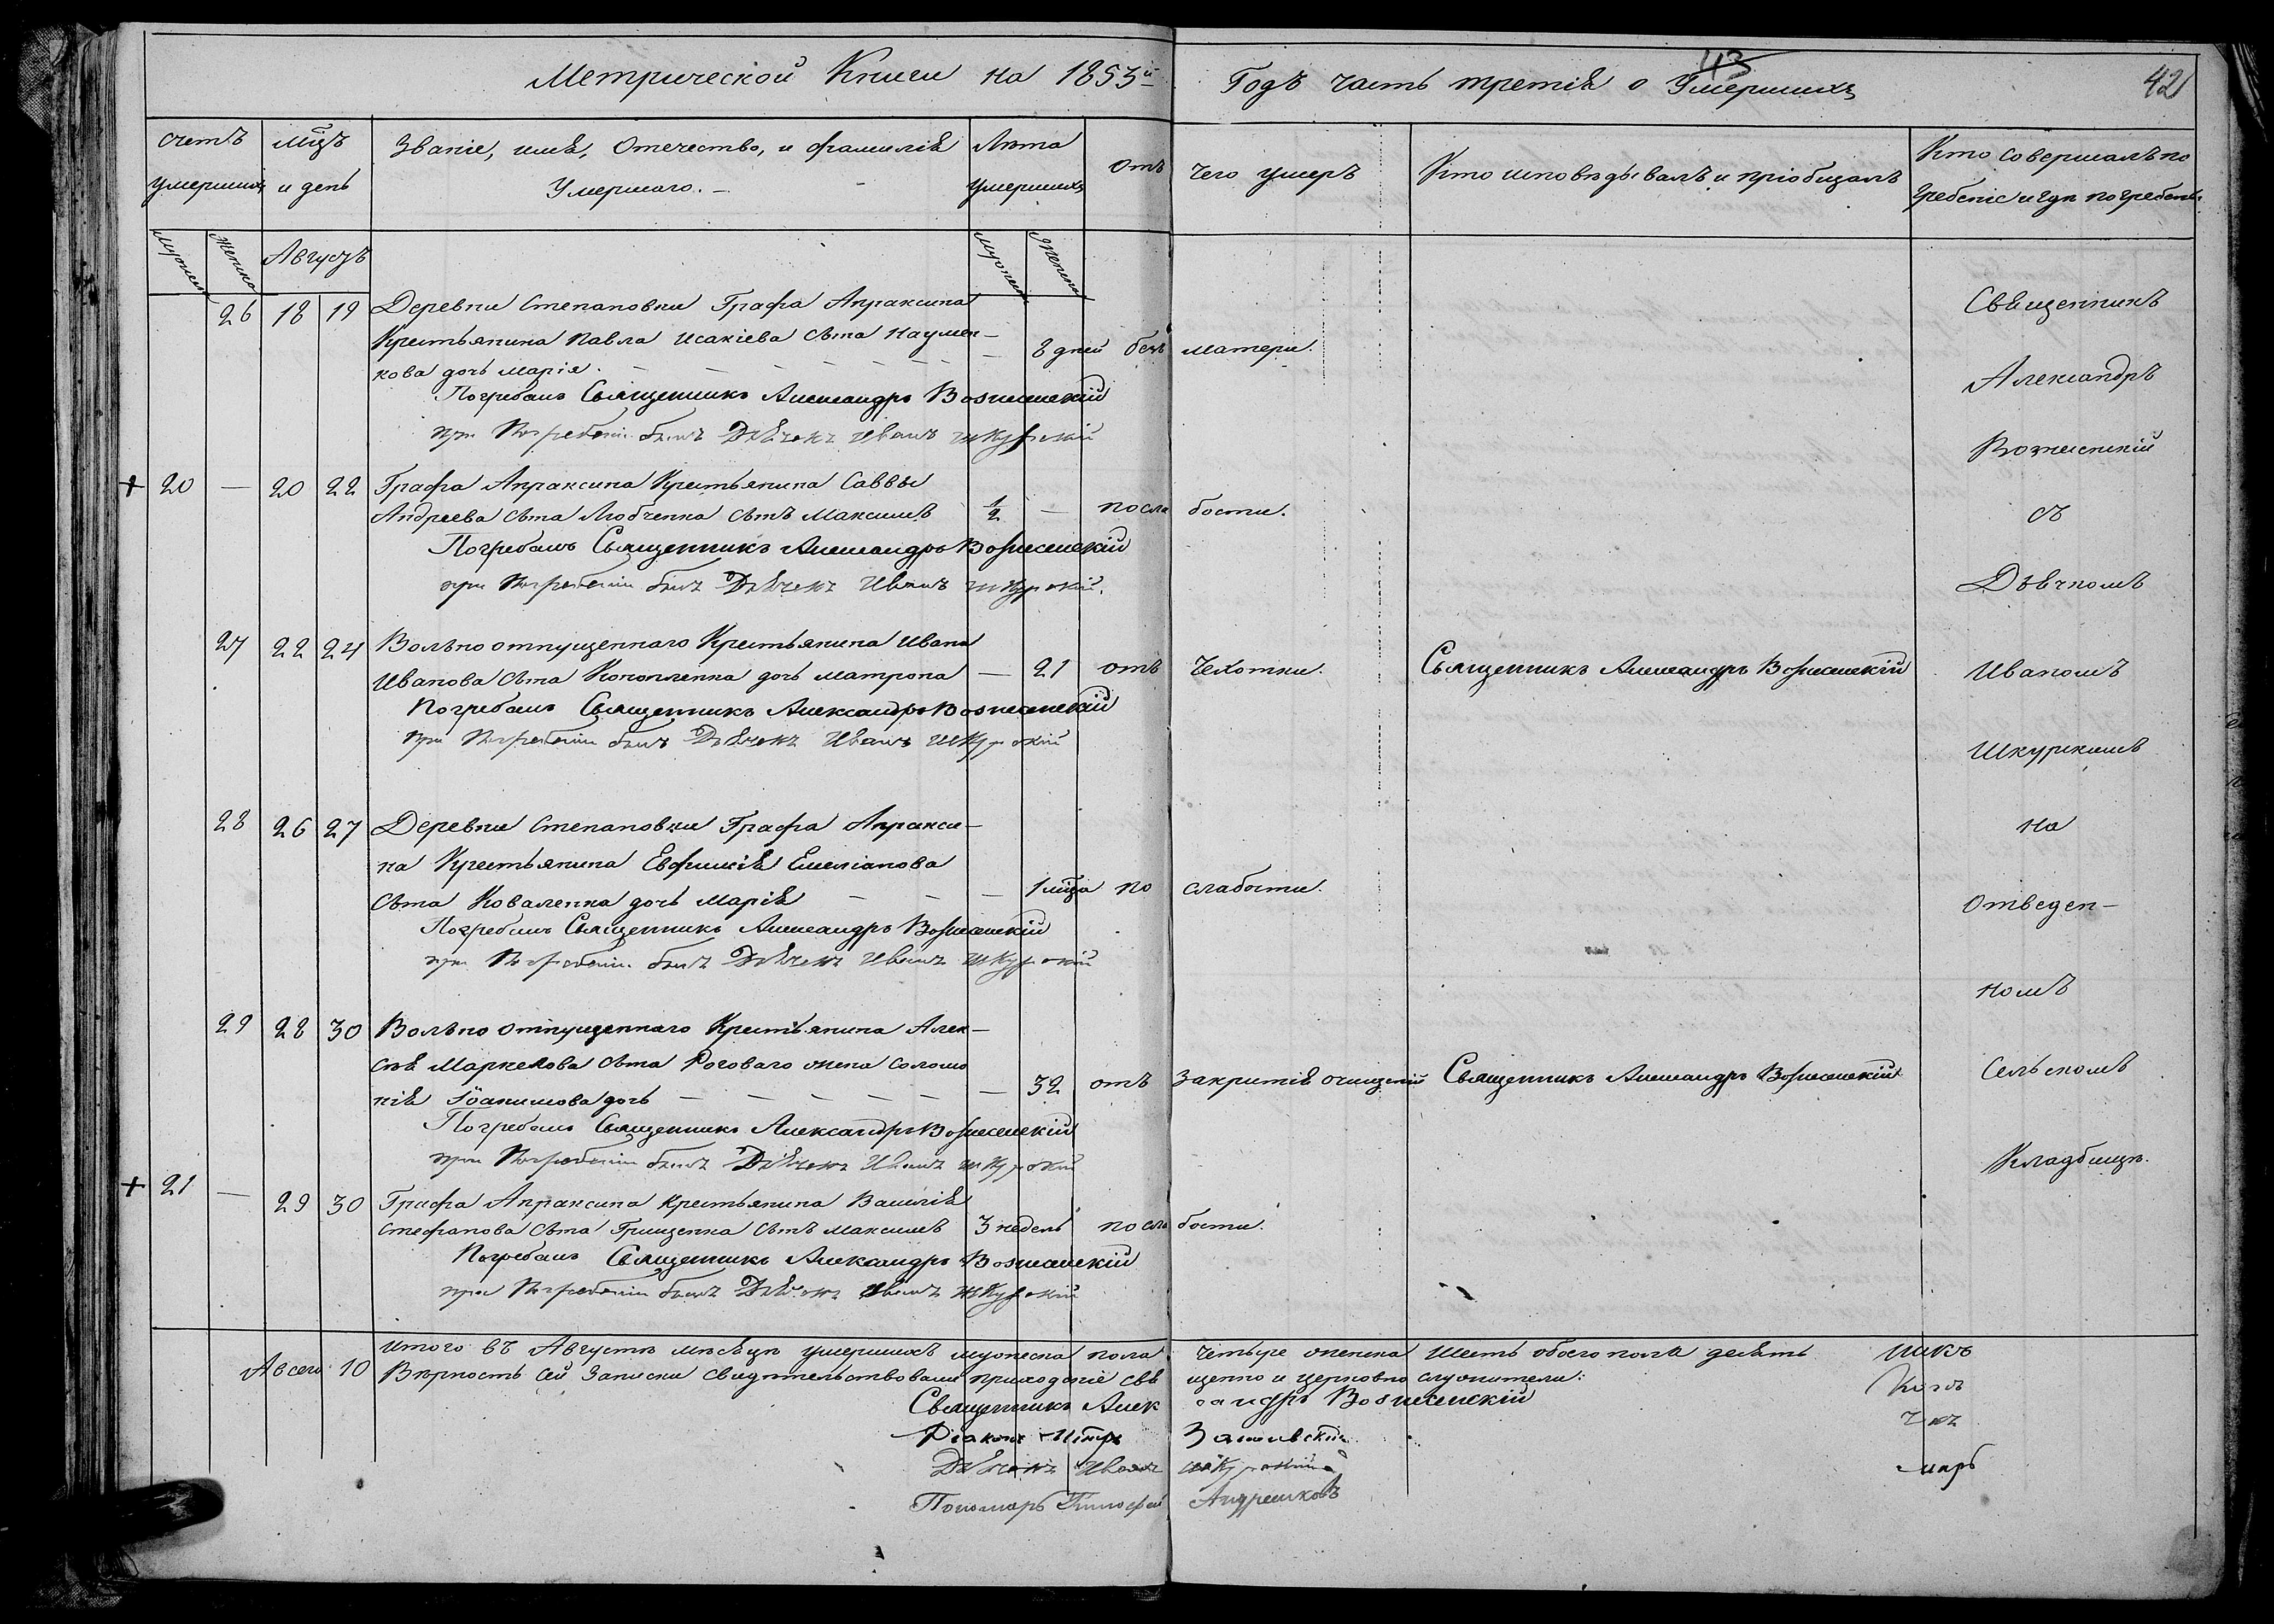 Метрической Книги на 1853й Годъ часть третія о Умершихъ
43
42
счетъ умершихъ
мцъ и день
Званіе, имя, Отечество, и фамилія Умершаго.
Лѣта умершихъ
Отъ чего умеръ
Кто исповѣдывалъ и пріобщалъ
Кто совершалъ погребеніе и гдѣ погребенъ
Мужеск
Женска
Августъ
Мужеск
Женска
26 18 19 Деревни Степановки Графа Апраксина
Крестьянина Павла Исакіева сына Наумен-
кова дочь Марія. — 8 дней безъ матери.
Погребалъ Священникъ Александръ Вознесенскій
при Погребеніи былъ Дьячекъ Иванъ Шкурскій
+ 20 — 20 22 Графа Апраксина Крестьянина Саввы
Андреева сына Любченка сынъ Максимъ 1/2 — по слабости.
Погребалъ Священникъ Александръ Вознесенскій
при Погребеніи былъ Дьячекъ Иванъ Шкурскій.
27 22 24 Вольно отпущеннаго Крестьянина Ивана
Иванова сына Кононленка дочь Матрона — 21 отъ Чехотки. Священникъ Александръ Вознесенскій
Погребалъ Священникъ Александръ Вознесенскій
при Погребеніи былъ Дьячекъ Иванъ Шкурскій
28 26 27 Деревни Степановки Графа Апракси-
на Крестьянина Евфимія Емеліанова
сына Коваленка дочь Марія — — — 1 мца по слабости.
Погребалъ Священникъ Александръ Вознесенскій
при Погребеніи былъ Дьячекъ Иванъ Шкурскій
29 28 30 Вольно отпущеннаго Крестьянина Алек-
сѣя Маркелова сына Роговаго жена Соломо
нія Іоакимова дочь — 32 отъ Закрытія очищеній Священникъ Александръ Вознесенскій
Погребалъ Священникъ Александръ Вознесенскій
при Погребеніи былъ Дьячекъ Иванъ Шкурскій
+ 21 — 29 30 Графа Апраксина крестьянина Василія
Стефанова сына Грищенка сынъ Максимъ 3 недель по слабости.
Погребалъ Священникъ Александръ Вознесенскій
при Погребеніи былъ Дьячекъ Иванъ Шкурскій
Священникъ
Александръ
Вознесенскій
съ
Дьячкомъ
Иваномъ
Шкурскимъ
на
Отведен-
номъ
Сельскомъ
Кладбищѣ.
Итого въ Августѣ мѣсяцѣ умершихъ мужеска пола четыре женска шесть обоего пола десять
А всего 10 Вѣрность сей Записки свидѣтельствовали приходскіе священно и церковно служители:
Священникъ Александръ Вознесенскій
Діаконъ Петръ
Дьячекъ Иванъ Шкурскій
Пономарь Тимофей Андреенковъ